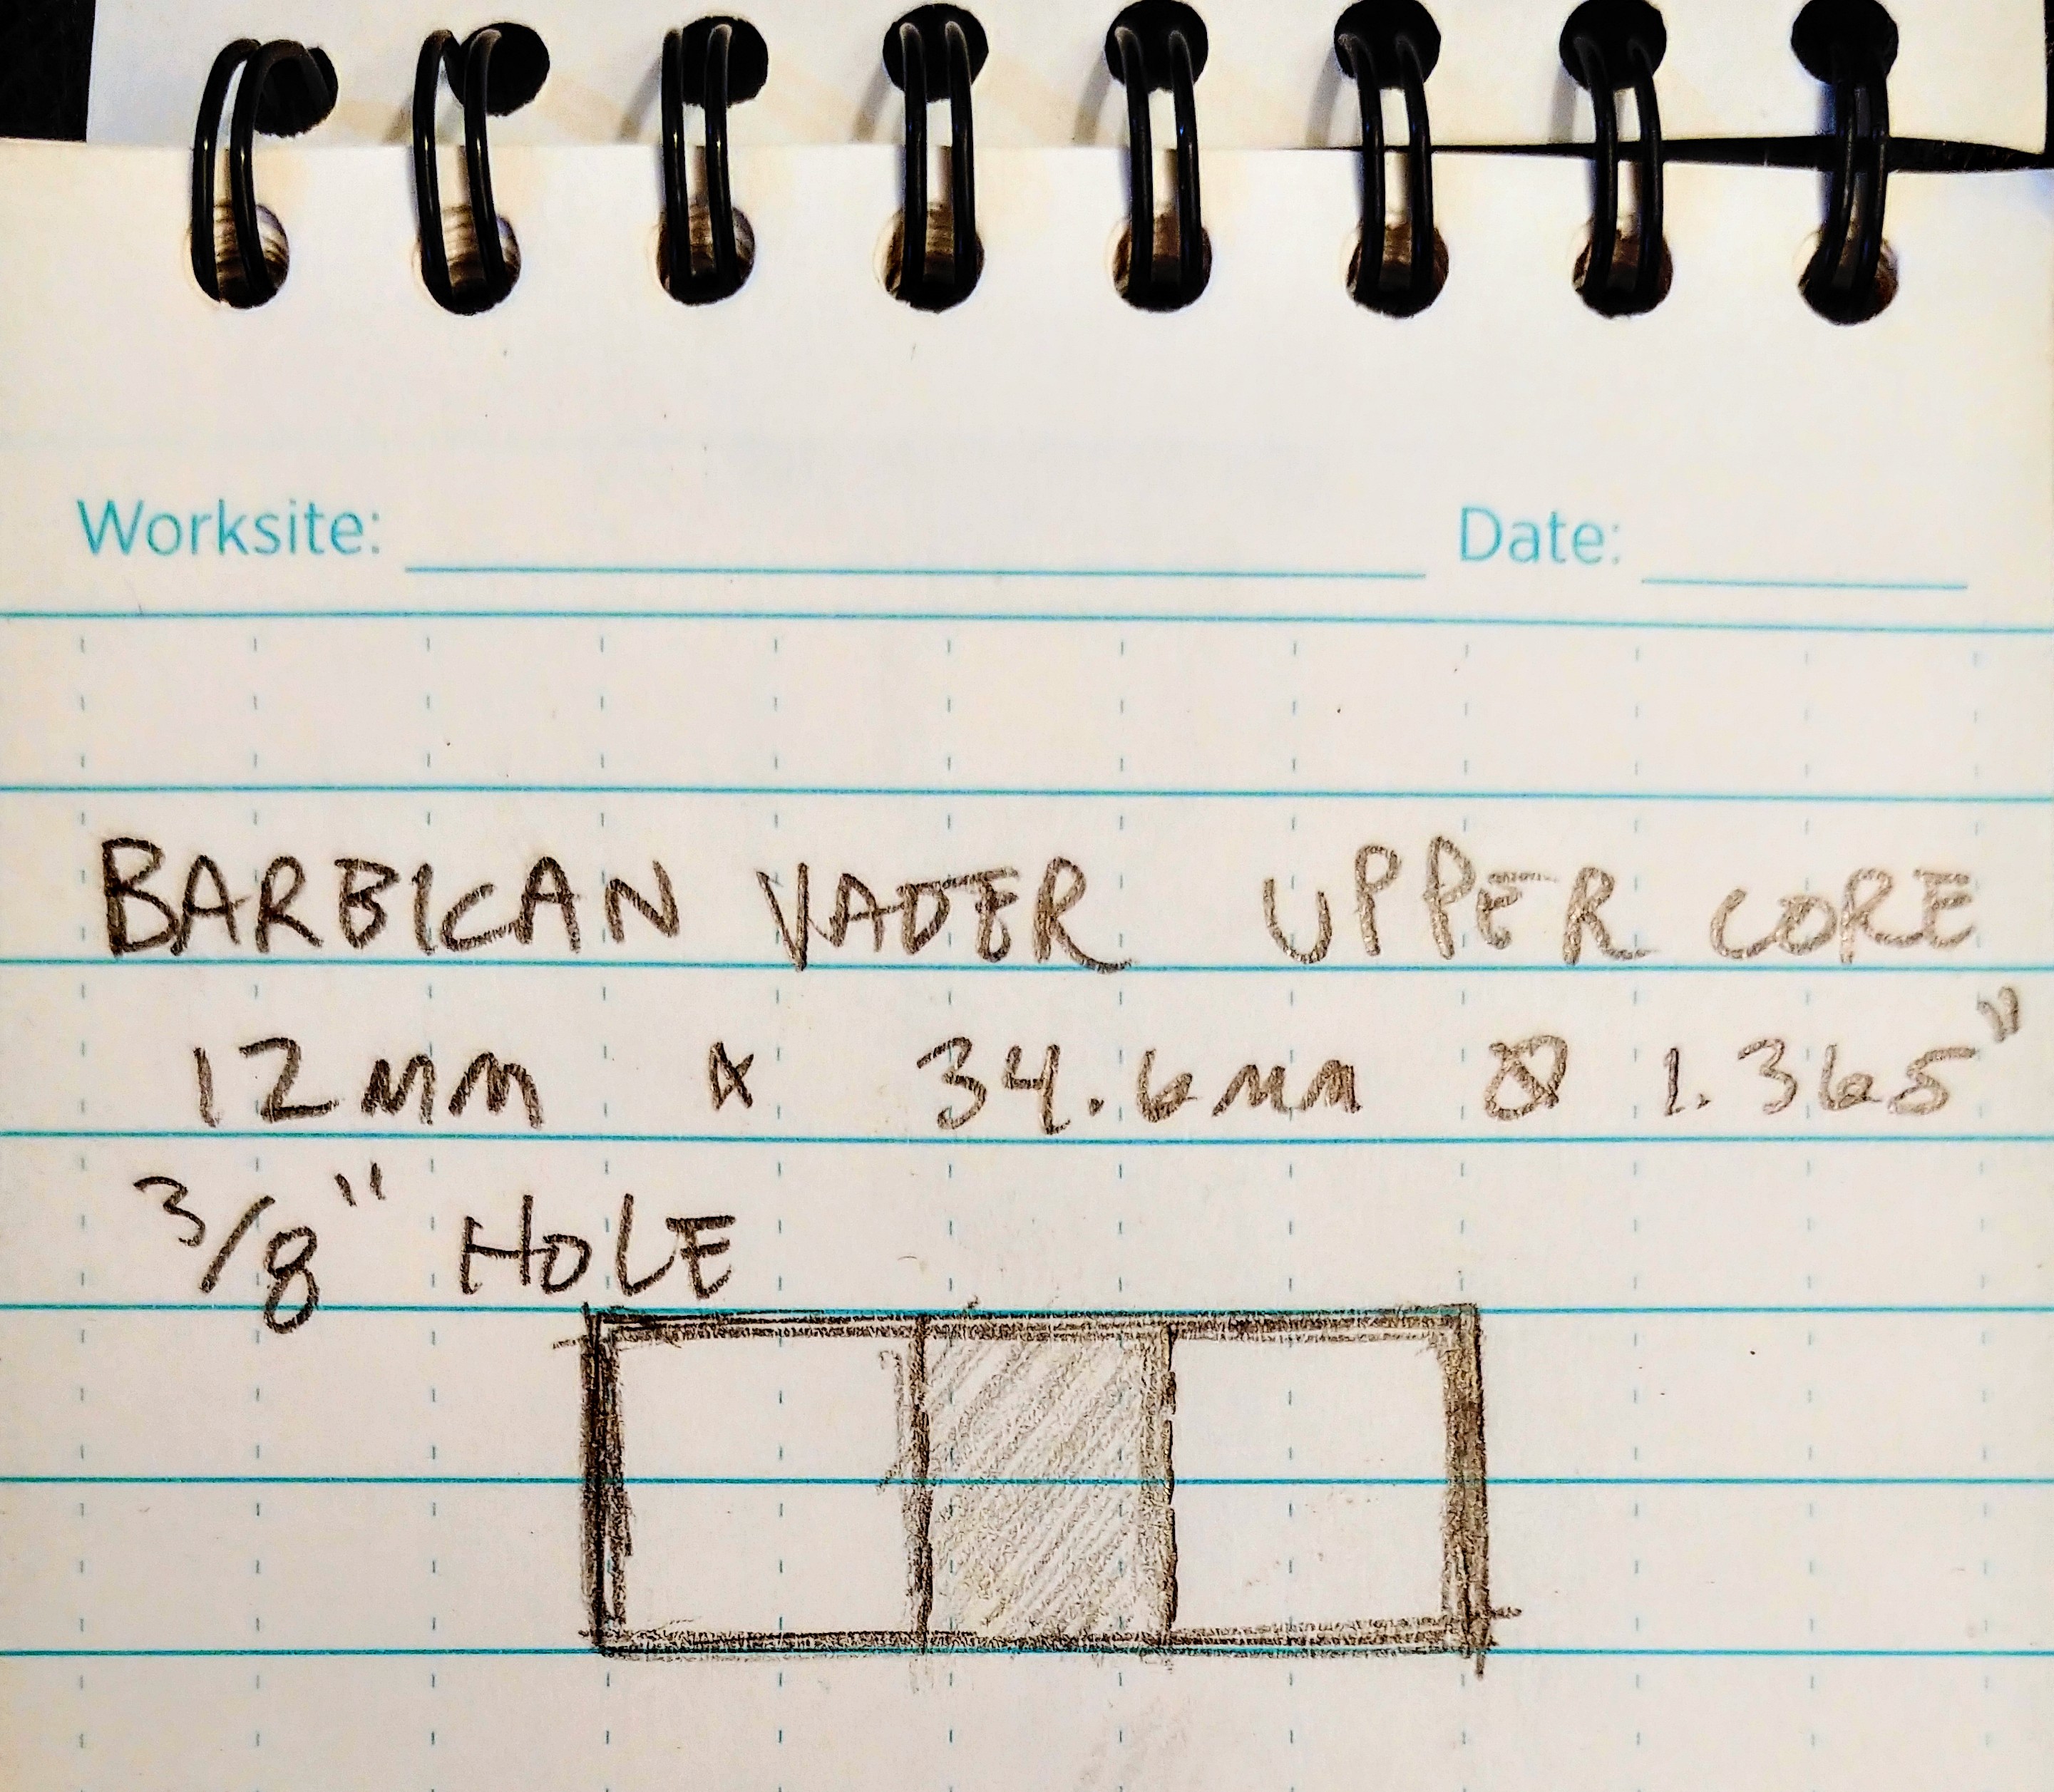 Worksite: Date:
BARBICAN VADER UPPER CORE
12mm x 34.6mm Ø 1.365"
3/8" HOLE